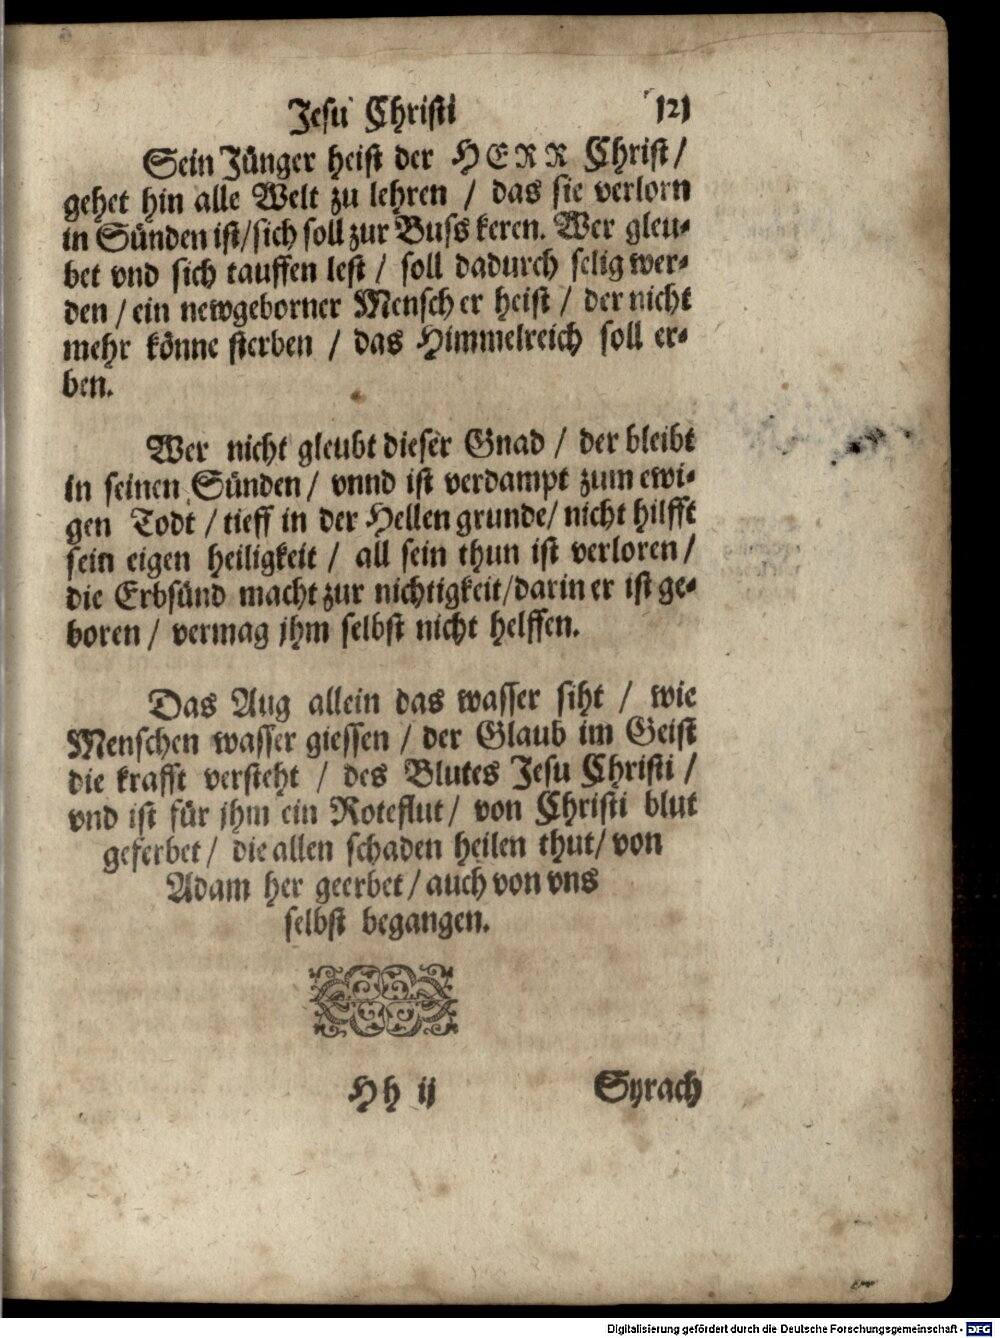 Jesu Christi 121
Sein Jünger heist der HERR Christ /
gehet hin alle Welt zu lehren / das sie verlorn
in Sünden ist / sich soll zur Buss keren. Wer gleu-
bet vnd sich tauffen lest / soll dadurch selig wer-
den / ein newgeborner Mensch er heist / der nicht
mehr könne sterben / das Himmelreich soll er-
ben.
Wer nicht gleubt dieser Gnad / der bleibt
in seinen Sünden / vnnd ist verdampt zum ewi-
gen Todt / tieff in der Hellen grunde / nicht hilfft
sein eigen heiligkeit / all sein thun ist verloren /
die Erbsünd macht zur nichtigkeit / darin er ist ge-
boren / vermag jhm selbst nicht helffen.
Das Aug allein das wasser siht / wie
Menschen wasser giessen / der Glaub im Geist
die krafft versteht / des Blutes Jesu Christi /
vnd ist für jhm ein Roteflut / von Christi blut
geferbet / die allen schaden heilen thut / von
Adam her geerbet / auch von vns
selbst begangen.
Hh ij Syrach
Digitalisierung gefördert durch die Deutsche Forschungsgemeinschaft - DFG